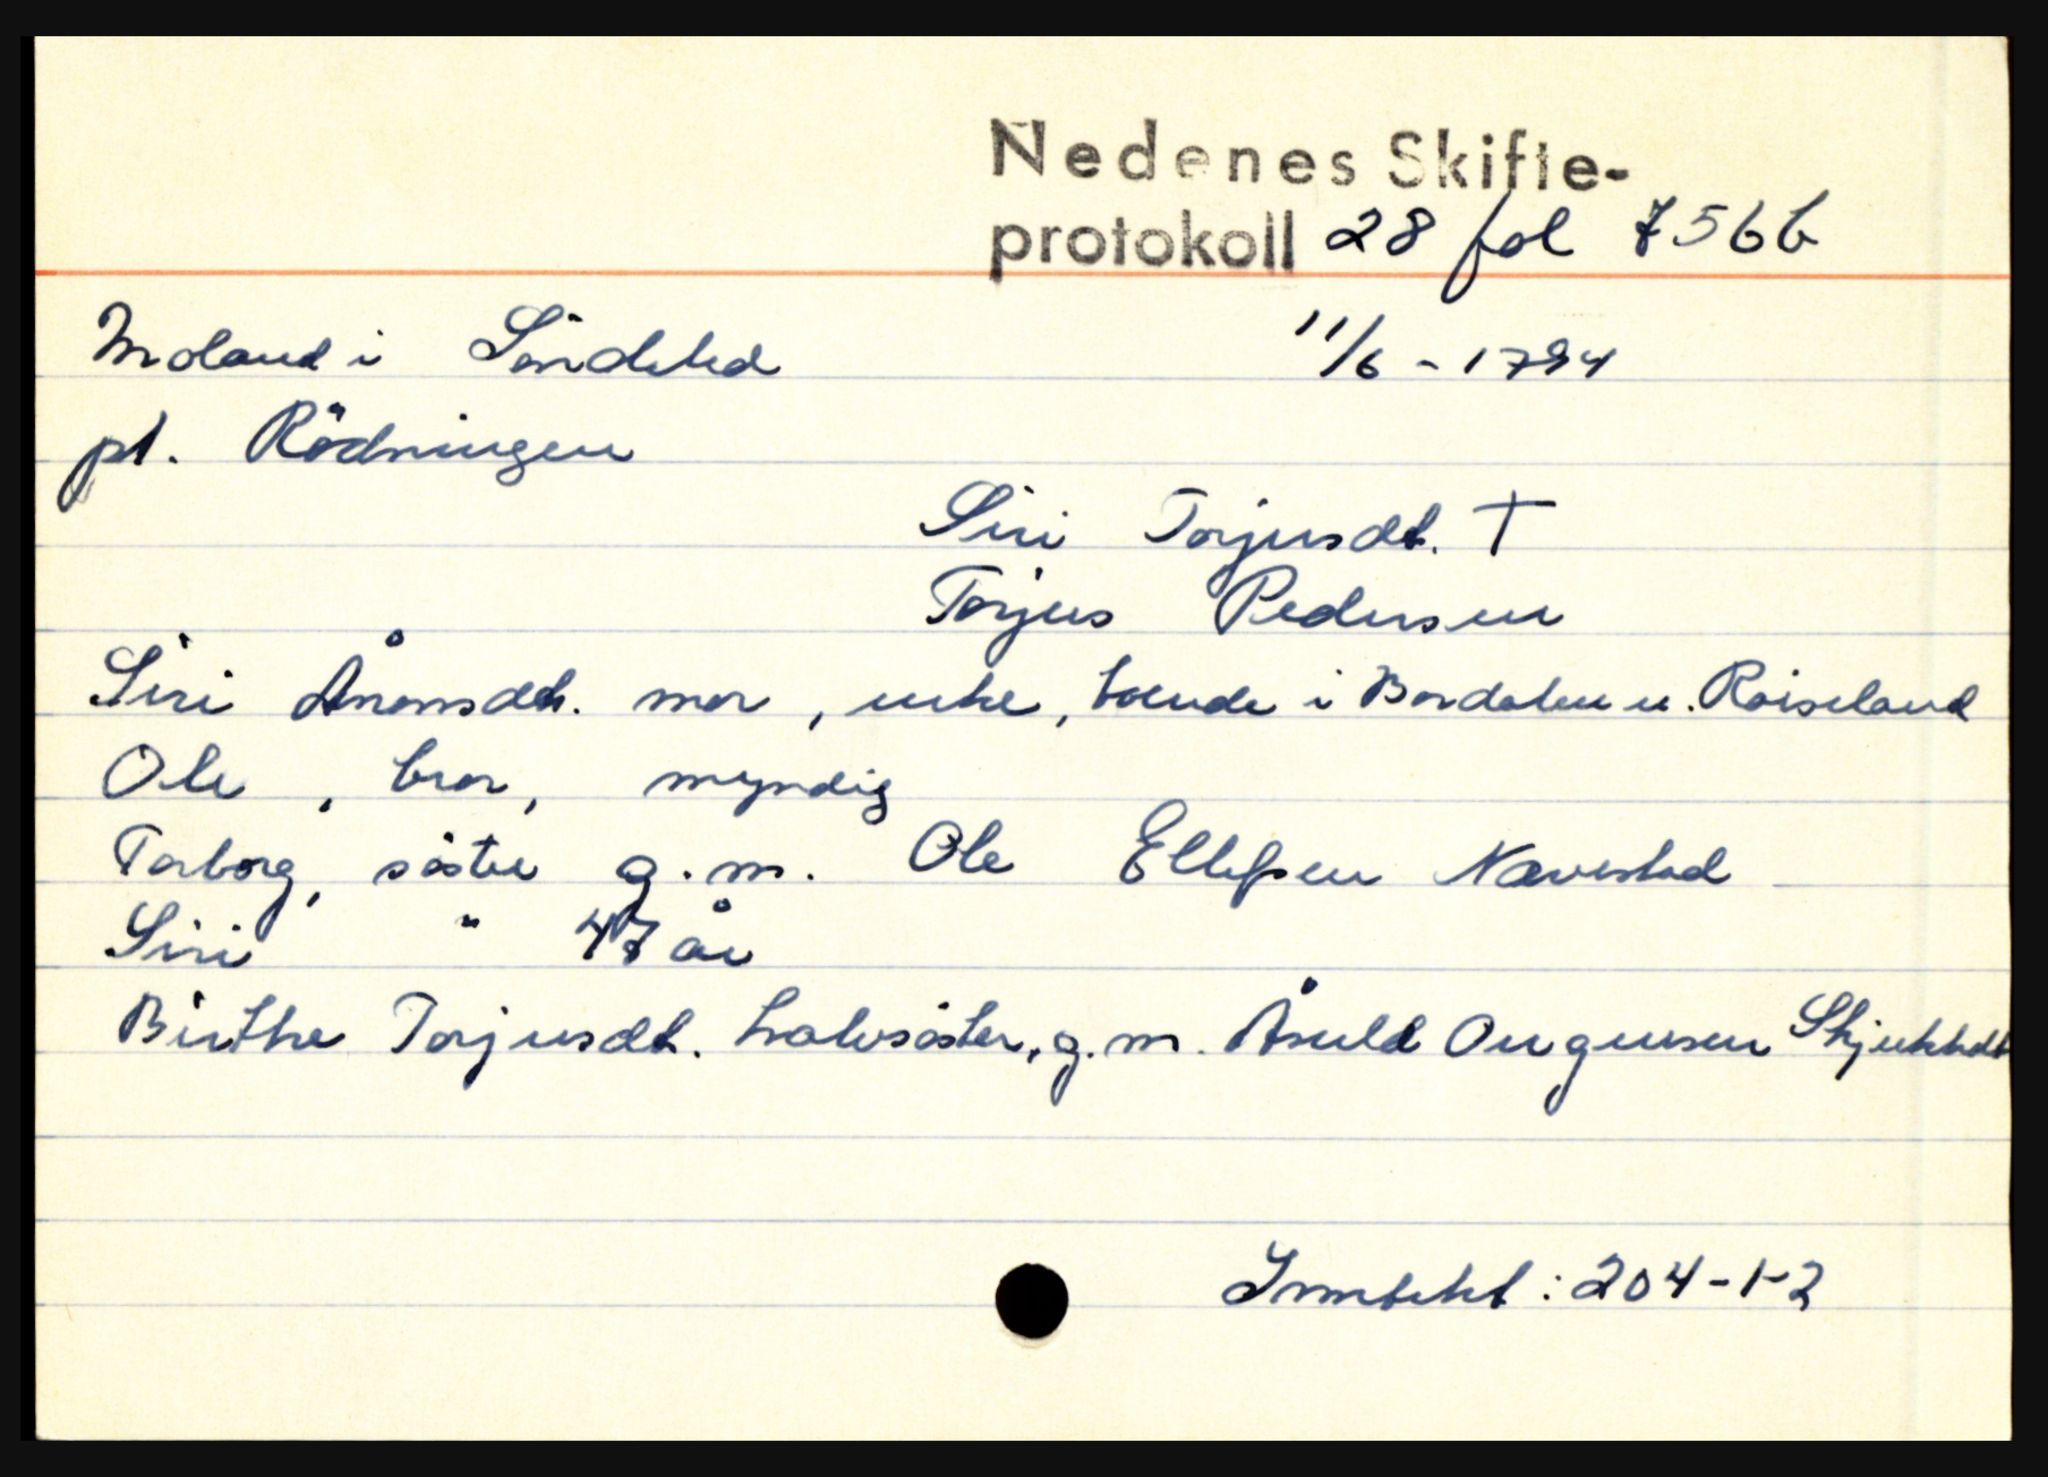 Nedenes Skifte-
protokoll 28 fol 756b
Moland i Söndeled 11/6 - 1794
pl. Rödningen
Siri Torjusdt. †
Torjus Pedersen
Siri Ånonsdt. mor, enke, boende i Bordalen u. Roiseland
Ole, bror, myndig
Torborg, söster g.m. Ole Ellefsen Navestad
Siri " 47 år
Birthe Torjusdt. halvsöster, g.m. Åsuld Ougensen
Inntekt: 204-1-2